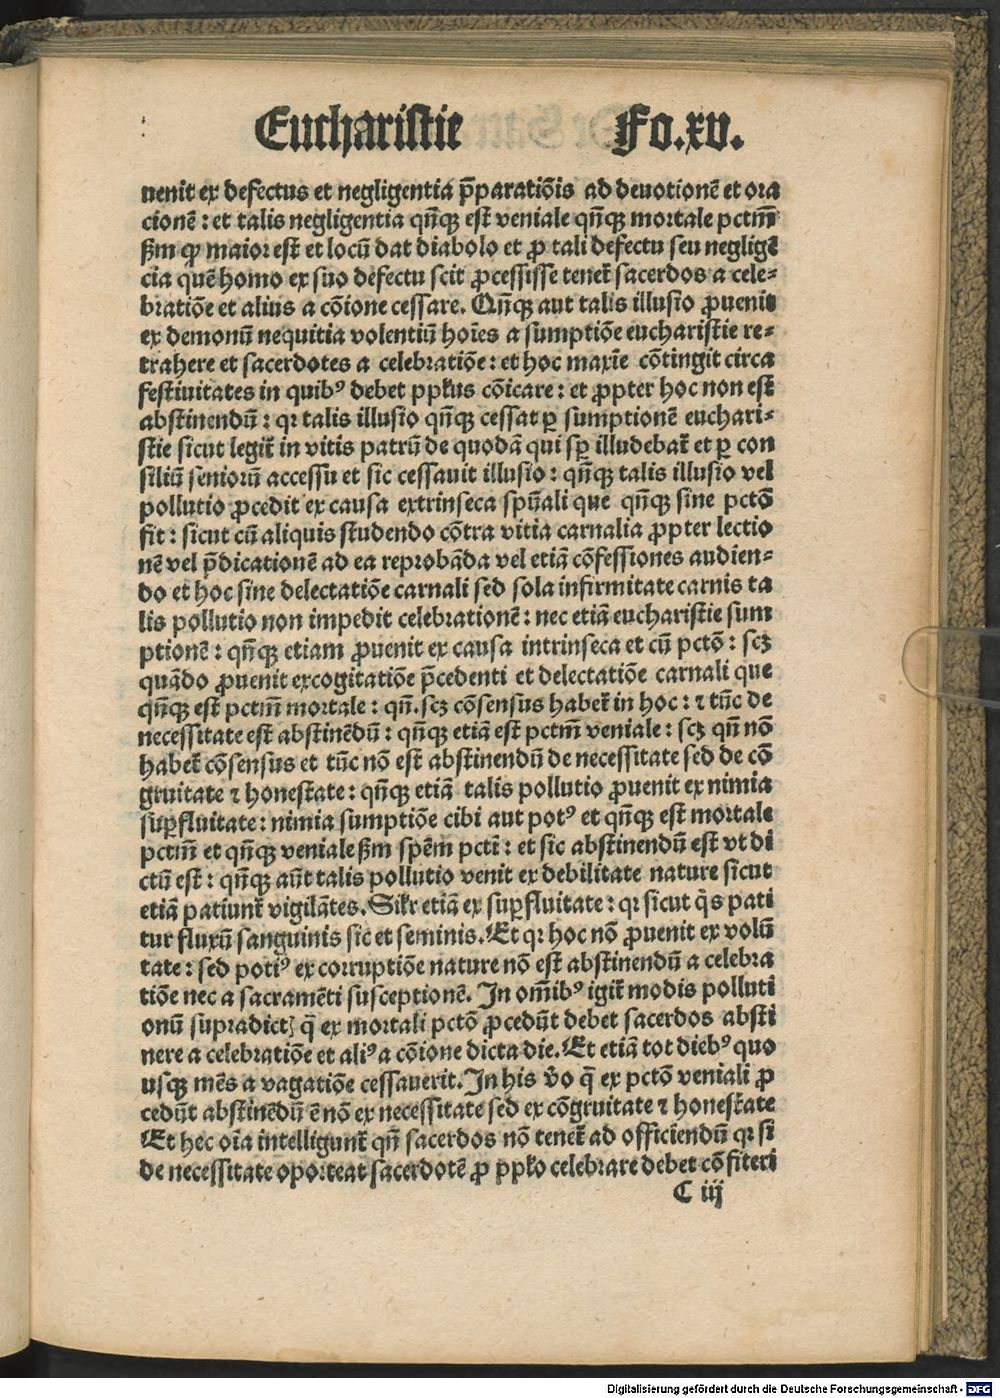 Euchariſtie Fo.xv.
uenit ex defectus et negligentia p̄paratiōis ad deuotionē et ora
cionē : et talis negligentia qn̄qꝫ eſt veniale qn̄qꝫ mortale pctm̄
ẜm ꝙ maior eſt et locū dat diabolo et ꝓ tali defectu ſeu negligē
cia quē homo ex ſuo defectu ſcit ꝓceſſiſſe tenet̄ ſacerdos a cele⸗
bratiōe et alius a cōione ceſſare. Qn̄qꝫ aut talis illuſio ꝓuenit
ex demonū nequitia volentiū hoīes a ſumptiōe euchariſtie re⸗
trahere et ſacerdotes a celebratiōe : et hoc maxīe cōtingit circa
feſtiuitates in quibꝰ debet ppłus cōicare : et ꝓpter hoc non eſt
abſtinendū : qꝛ talis illuſio qn̄qꝫ ceſſat ꝑ ſumptionē euchari⸗
ſtie ſicut legit̄ in vitis patrū de quodā qui ſꝑ illudebat̄ et ꝑ con
ſiliū ſeniorū acceſſu et ſic ceſſauit illuſio : qn̄qꝫ talis illuſio vel
pollutio ꝓcedit ex cauſa extrinſeca ſpūali que qn̄qꝫ ſine pctō
fit : ſicut cū aliquis ſtudendo cōtra vitia carnalia ꝓpter lectio
nē vel p̄dicationē ad ea reprobāda vel etiā cōfeſſiones audien⸗
do et hoc ſine delectatiōe carnali ſed ſola infirmitate carnis ta
lis pollutio non impedit celebrationē : nec etiā euchariſtie ſum
ptionē : qn̄qꝫ etiam ꝓuenit ex cauſa intrinſeca et cū pctō : ſcꝫ
quādo ꝓuenit excogitatiōe p̄cedenti et delectatiōe carnali que
qn̄qꝫ eſt pctm̄ mortale : qn̄.ſcꝫ cōſenſus habet̄ in hoc : ⁊ tūc de
neceſſitate eſt abſtinēdū : qn̄qꝫ etiā eſt pctm̄ veniale : ſcꝫ qn̄ nō
habet̄ cōſenſus et tūc nō eſt abſtinendū de neceſſitate ſed de cō
gruitate ⁊ honeſtate : qn̄qꝫ etiā talis pollutio ꝓuenit ex nimia
ſuꝑfluitate : nimia ſumptiōe cibi aut potꝰ et qn̄qꝫ eſt mortale
pctm̄ et qn̄qꝫ veniale ẜm ſpēm pcti : et ſic abſtinendū eſt vt di
ctū eſt : qn̄qꝫ aūt talis pollutio venit ex debilitate nature ſicut
etiā patiunt̄ vigilātes. Siłr etiā ex ſuꝑfluitate : qꝛ ſicut q̄s pati
tur fluxū ſanguinis ſic et ſeminis. Et qꝛ hoc nō ꝓuenit ex volū
tate : ſed potiꝰ ex corruptiōe nature nō eſt abſtinendū a celebra
tiōe nec a ſacramēti ſuſceptionē. In om̄ibꝰ igit̄ modis polluti
onū ſupradictꝭ q̄ ex mortali pctō ꝓcedūt debet ſacerdos abſti
nere a celebratiōe et aliꝰ a cōione dicta die. Et etiā tot diebꝰ quo
uſqꝫ mēs a vagatiōe ceſſauerit. In his v̄o q̄ ex pctō veniali ꝓ
cedūt abſtinēdū ē nō ex neceſſitate ſed ex cōgruitate ⁊ honeſtate
Et hec oīa intelligunt̄ qn̄ ſacerdos nō tenet̄ ad officiendū qꝛ ſi
de neceſſitate oporteat ſacerdotē ꝓ ppło celebrare debet cōfiteri
C iij
Digitalisierung gefördert durch die Deutsche Forschungsgemeinschaft - DFG